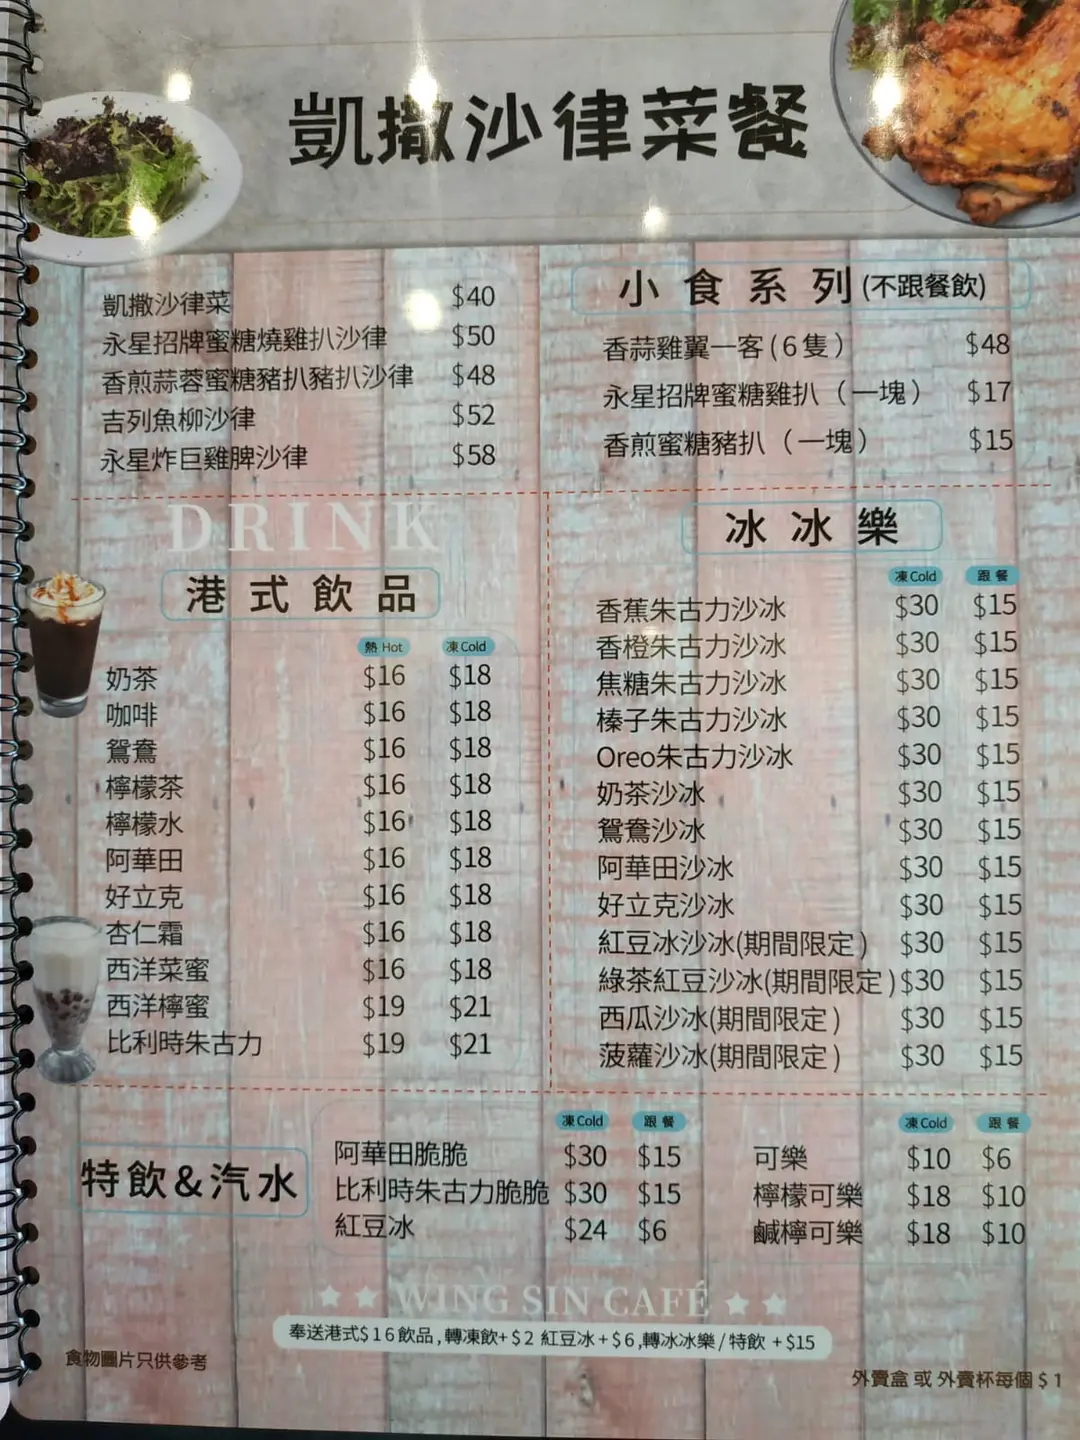 凱撒沙律菜餐
凱撒沙律菜 $40
永星招牌蜜糖燒雞扒沙律 $50
香煎蒜蓉蜜糖豬扒豬扒沙律 $48
吉列魚柳沙律 $52
永星炸巨雞脾沙律 $58
小食系列(不跟餐飲)
香蒜雞翼一客(6隻) $48
永星招牌蜜糖雞扒（一塊） $17
香煎蜜糖豬扒（一塊） $15
DRINK
港式飲品
熱 Hot 凍 Cold
奶茶 $16 $18
咖啡 $16 $18
鴛鴦 $16 $18
檸檬茶 $16 $18
檸檬水 $16 $18
阿華田 $16 $18
好立克 $16 $18
杏仁霜 $16 $18
西洋菜蜜 $16 $18
西洋檸蜜 $19 $21
比利時朱古力 $19 $21
冰冰樂
凍 Cold 跟餐
香蕉朱古力沙冰 $30 $15
香橙朱古力沙冰 $30 $15
焦糖朱古力沙冰 $30 $15
榛子朱古力沙冰 $30 $15
Oreo朱古力沙冰 $30 $15
奶茶沙冰 $30 $15
鴛鴦沙冰 $30 $15
阿華田沙冰 $30 $15
好立克沙冰 $30 $15
紅豆冰沙冰(期間限定) $30 $15
綠茶紅豆沙冰(期間限定) $30 $15
西瓜沙冰(期間限定) $30 $15
菠蘿沙冰(期間限定) $30 $15
特飲&汽水
凍 Cold 跟餐
阿華田脆脆 $30 $15
比利時朱古力脆脆 $30 $15
紅豆冰 $24 $6
凍 Cold 跟餐
可樂 $10 $6
檸檬可樂 $18 $10
鹹檸可樂 $18 $10
WING SIN CAFÉ
奉送港式$16飲品,轉凍飲+$2 紅豆冰+$6,轉冰冰樂/特飲 +$15
食物圖片只供參考
外賣盒 或 外賣杯每個 $1